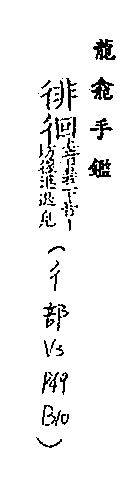 龍龕手鑑
徘徊上音裴下音彷徨進退皃(彳部V3P49B10)